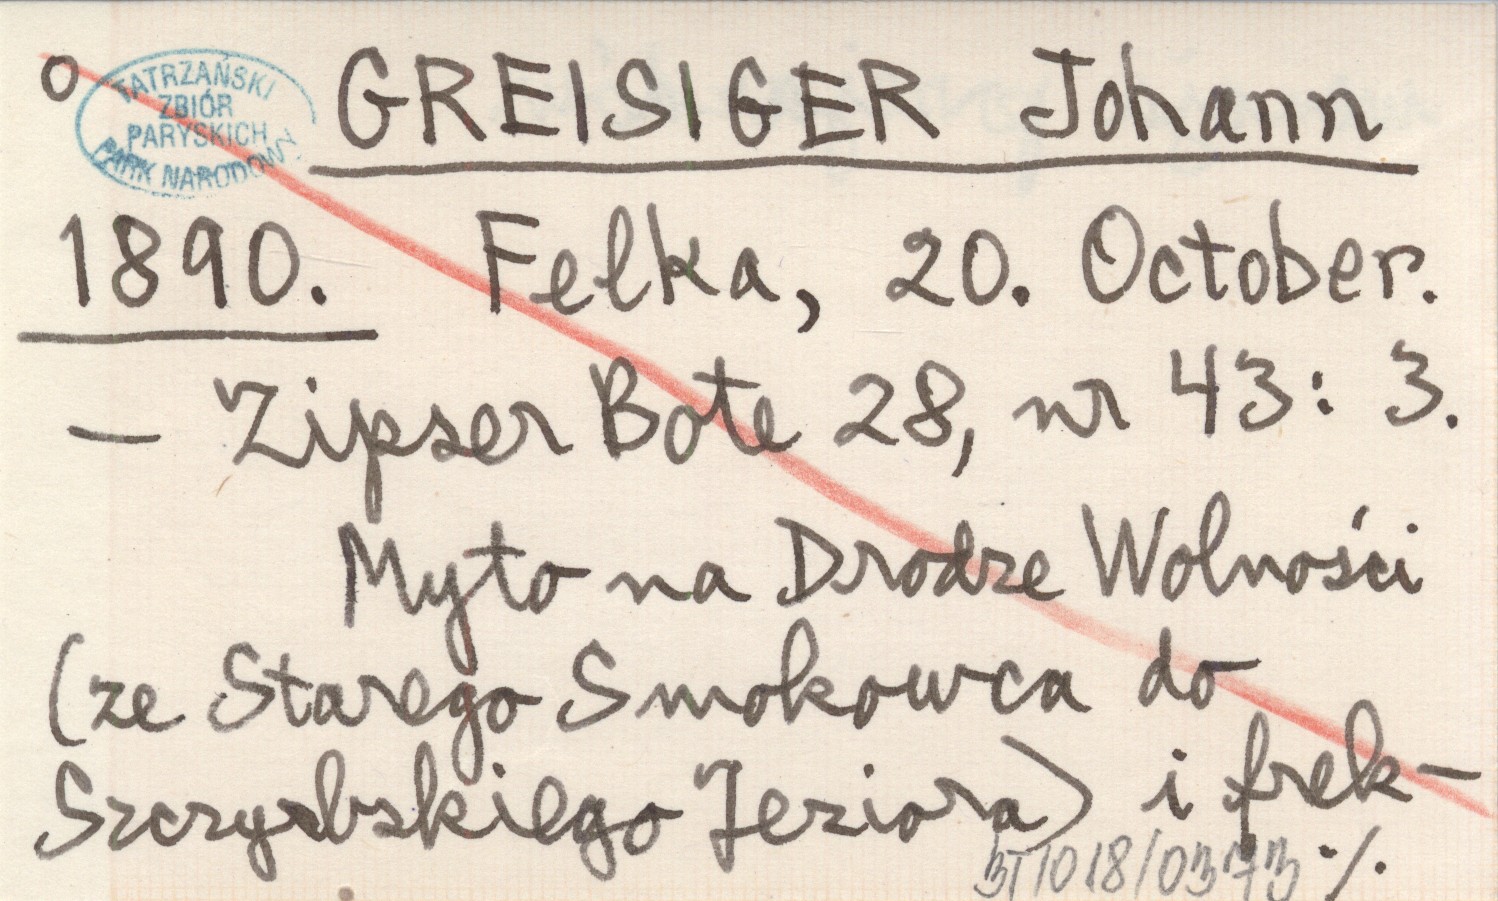 o
TATRZAŃSKI
ZBIÓR
PARYSKICH
PARK NARODOWY
GREISIGER Johann
1890. Felka, 20. October.
— Zipser Bote 28, nr 43: 3.
Myto na Drodze Wolności
(ze Starego Smokowca do
Szczyrbskiego Jeziora) i frek-
3T/018/0373 ./.